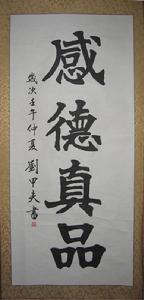 感德真品
歲次壬午仲夏 劉甲夫書